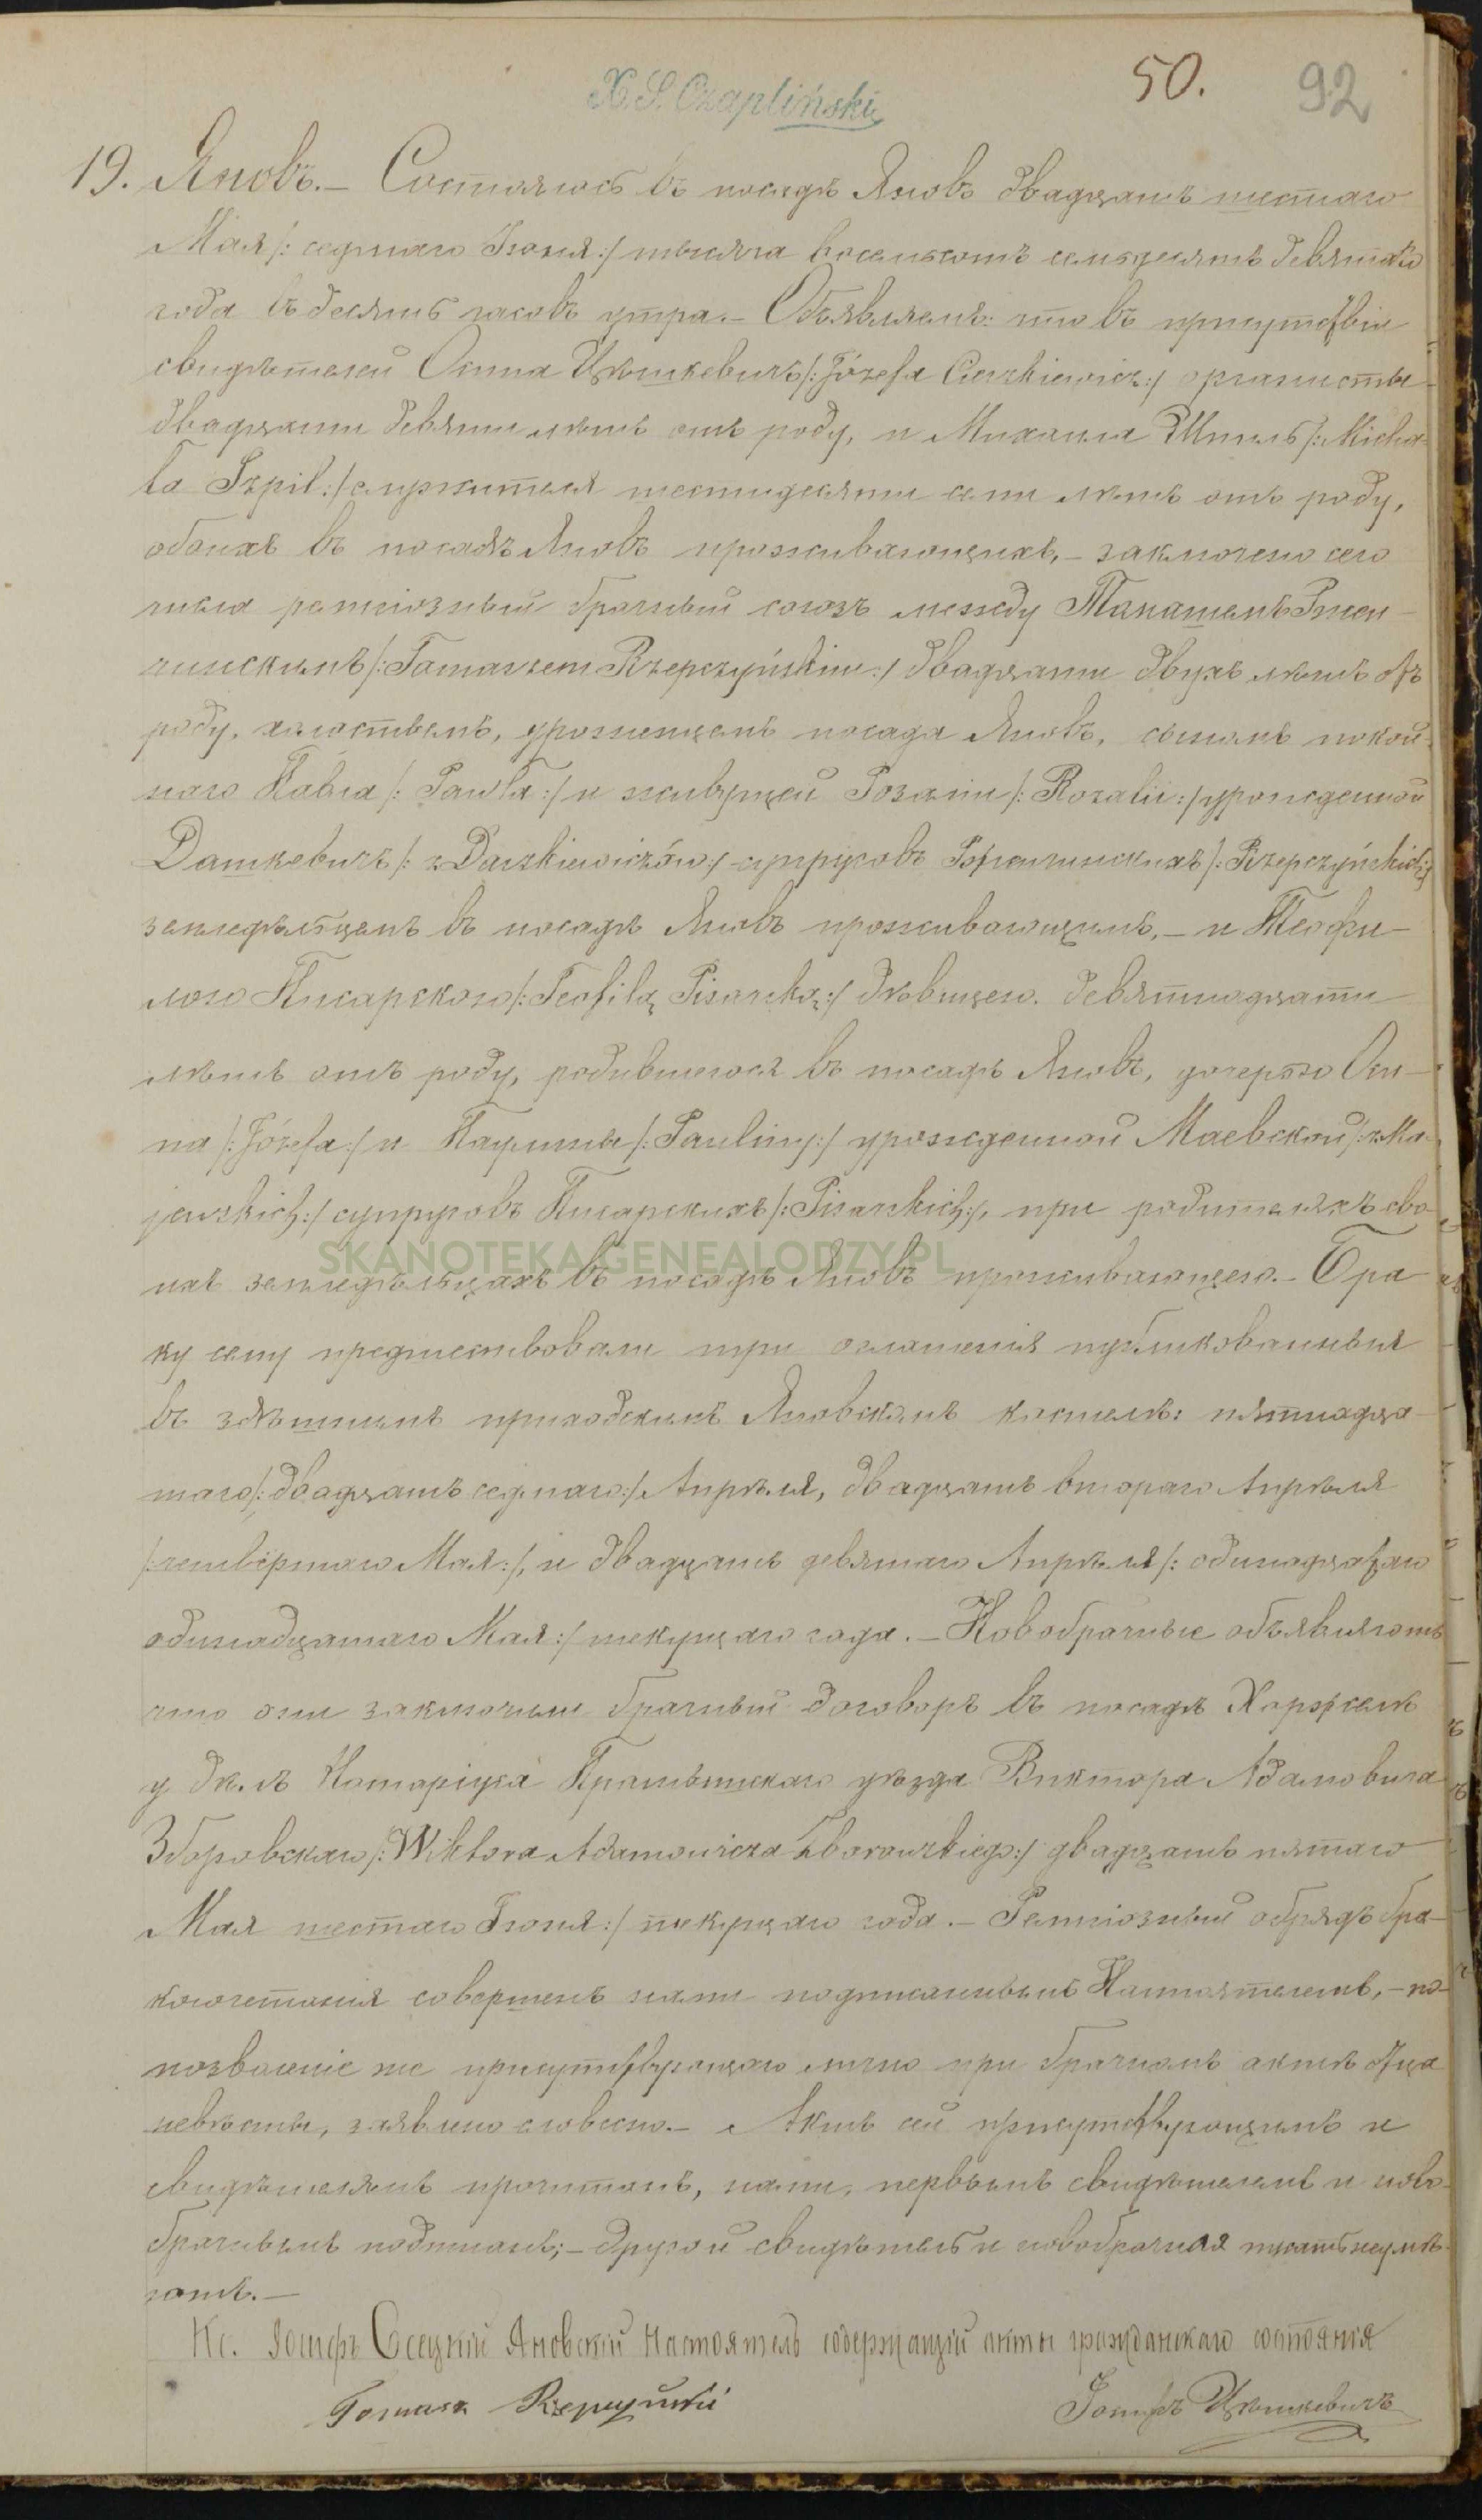 X. S. Czapliński
50. 92
19. Яновъ.- Состоялось въ посадѣ Яновѣ двадцать шестаго
Мая /: седьмаго Іюня :/ тысяча восемьсотъ семьдесятъ девятаго
года въ десять часовъ утра.- Объявляемъ: что въ присутствіи
свидѣтелей Осипа Цѣшкевичъ /: Józefa Cieszkiewicz :/ органисты
двадцати девяти лѣтъ отъ роду, и Михаила Шпиль /: Micha-
ła Szpil :/ служителя шестидесяти семи лѣтъ отъ роду,
обоихъ въ посадѣ Яновѣ проживающихъ,- заключено сего
числа религіозный брачный союзъ между Томашемъ Ржеп-
чинскимъ /: Tomaszem Rzepczyńskim :/ двадцати двухъ лѣтъ отъ
роду, холостымъ, уроженцемъ посада Яновъ, сыномъ покой-
наго Павла /: Pawła :/ и живущей Розаліи /: Rozalii :/ урожденной
Дашкевичъ /: z Daszkiewiczów :/ супруговъ Ржепчинскихъ /: Rzepczyńskich :/
земледѣльцемъ въ посадѣ Яновѣ проживающимъ,- и Теофи-
лою Писарскою /: Teofilą Pisarską :/ дѣвицею девятнадцати
лѣтъ отъ роду, родившеюся въ посадѣ Яновѣ, дочерью Оси-
па /: Józefa :/ и Паулины /: Pauliny :/ урожденной Маевской /: z Ma-
jewskich :/ супруговъ Писарскихъ /: Pisarskich :/, при родителяхъ сво-
ихъ земледѣльцахъ въ посадѣ Яновѣ проживающею.- Бра-
ку сему предшествовали три оглашенія публикованныя
въ здѣшнимъ приходскимъ Яновскомъ костелѣ: пятнадца-
таго /: двадцать седьмаго :/ Апрѣля, двадцать втораго Апрѣля
/: четвёртаго Мая :/, и двадцать девятаго Апрѣля /: одинадцатаго
одинадцатаго Мая :/ текущаго года.- Новобрачные объявляютъ
что они заключили брачный договоръ въ посадѣ Хоржеле
у дѣлъ Нотаріуса Праснышскаго уѣзда Виктора Адамовича
Зборовскаго /: Wiktora Adamowicza Zborowskiego :/ двадцать пятаго
Мая шестаго Іюня :/ текущаго года.- Религіозный обрядъ бра-
косочетанія совершенъ нами подписаннымъ Настоятелемъ,- по-
позволеніе же присутствующаго лично при брачномъ актѣ Отца
невѣсты, заявлено словесно.- Актъ сей присутствующимъ и
свидѣтелямъ прочитанъ, нами, первымъ свидѣтелемъ и ново-
брачнымъ подписанъ;- другой свидѣтель и новобрачная писать неумѣ-
ютъ.-
Кс. Іосифъ Осецкій Яновскій Настоятель содержащій акты гражданскаго состоянія
Tomasz Rzepczyński Іосифъ Цѣшкевичъ
SKANOTEKA.GENEALODZY.PL